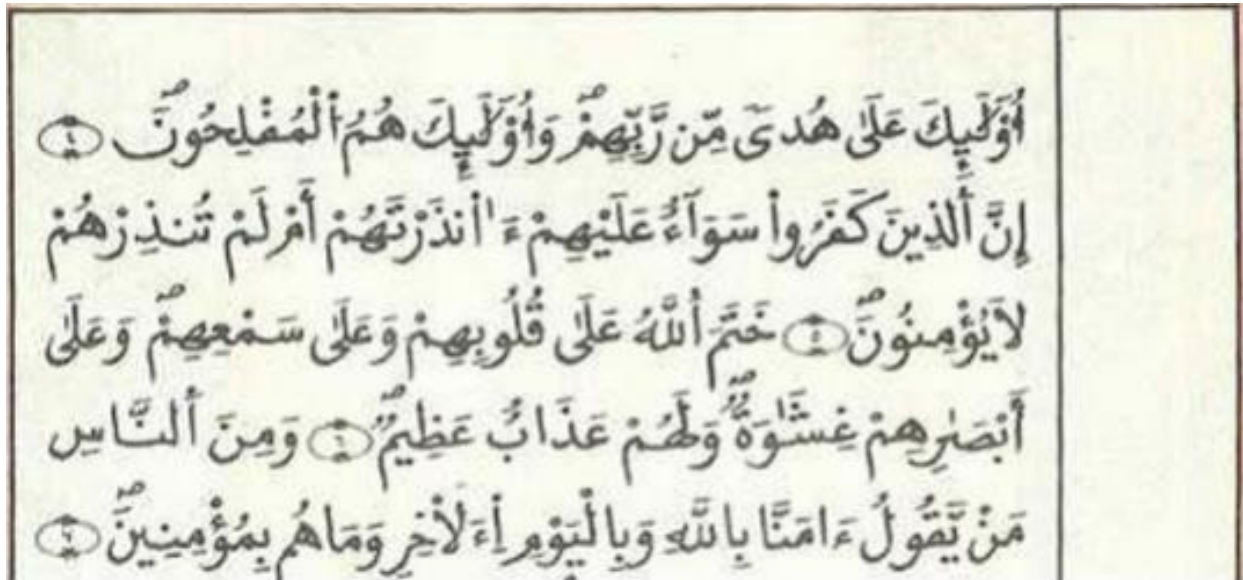 أُوْلَٰٓئِكَ عَلَىٰ هُدىٗ مِّن رَّبِّهِمْۖ وَأُوْلَٰٓئِكَ هُمُ اُ۬لْمُفْلِحُونَۖ ٤
إِنَّ اَ۬لذِينَ كَفَرُواْ سَوَآءٌ عَلَيْهِمْ ءَآنذَرْتَهُمْ أَمْ لَمْ تُنذِرْهُمْ
لَا يُؤْمِنُونَۖ ٥ خَتَمَ اَ۬للَّهُ عَلَىٰ قُلُوبِهِمْ وَعَلَىٰ سَمْعِهِمْۖ وَعَلَىٰٓ
أَبْصَٰرِهِمْ غِشَٰوَةٞۖ وَلَهُمْ عَذَابٌ عَظِيمٞۖ ٦ وَمِنَ اَ۬لنَّاسِ
مَنْ يَّقُولُ ءَامَنَّا بِاللَّهِ وَبِالْيَوْمِ اِ۬ءَلْأَخِرِ وَمَا هُم بِمُؤْمِنِينَۖ ٧